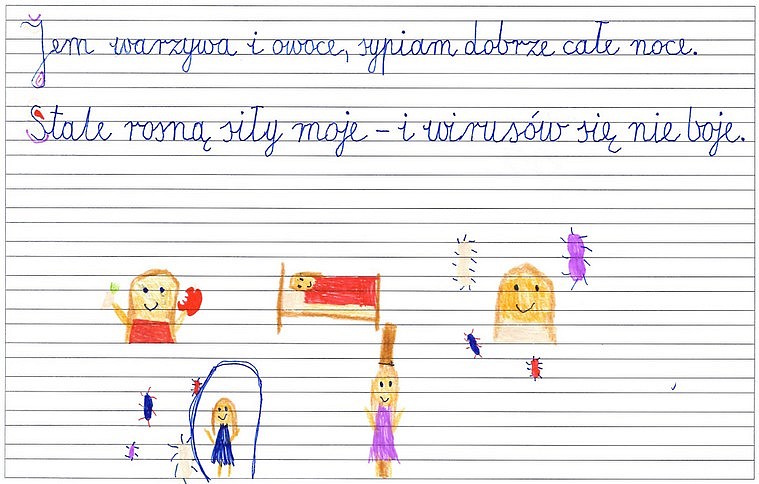 Jem warzywa i owoce, sypiam dobrze całe noce.
Stale rosną siły moje – i wirusów się nie boje.